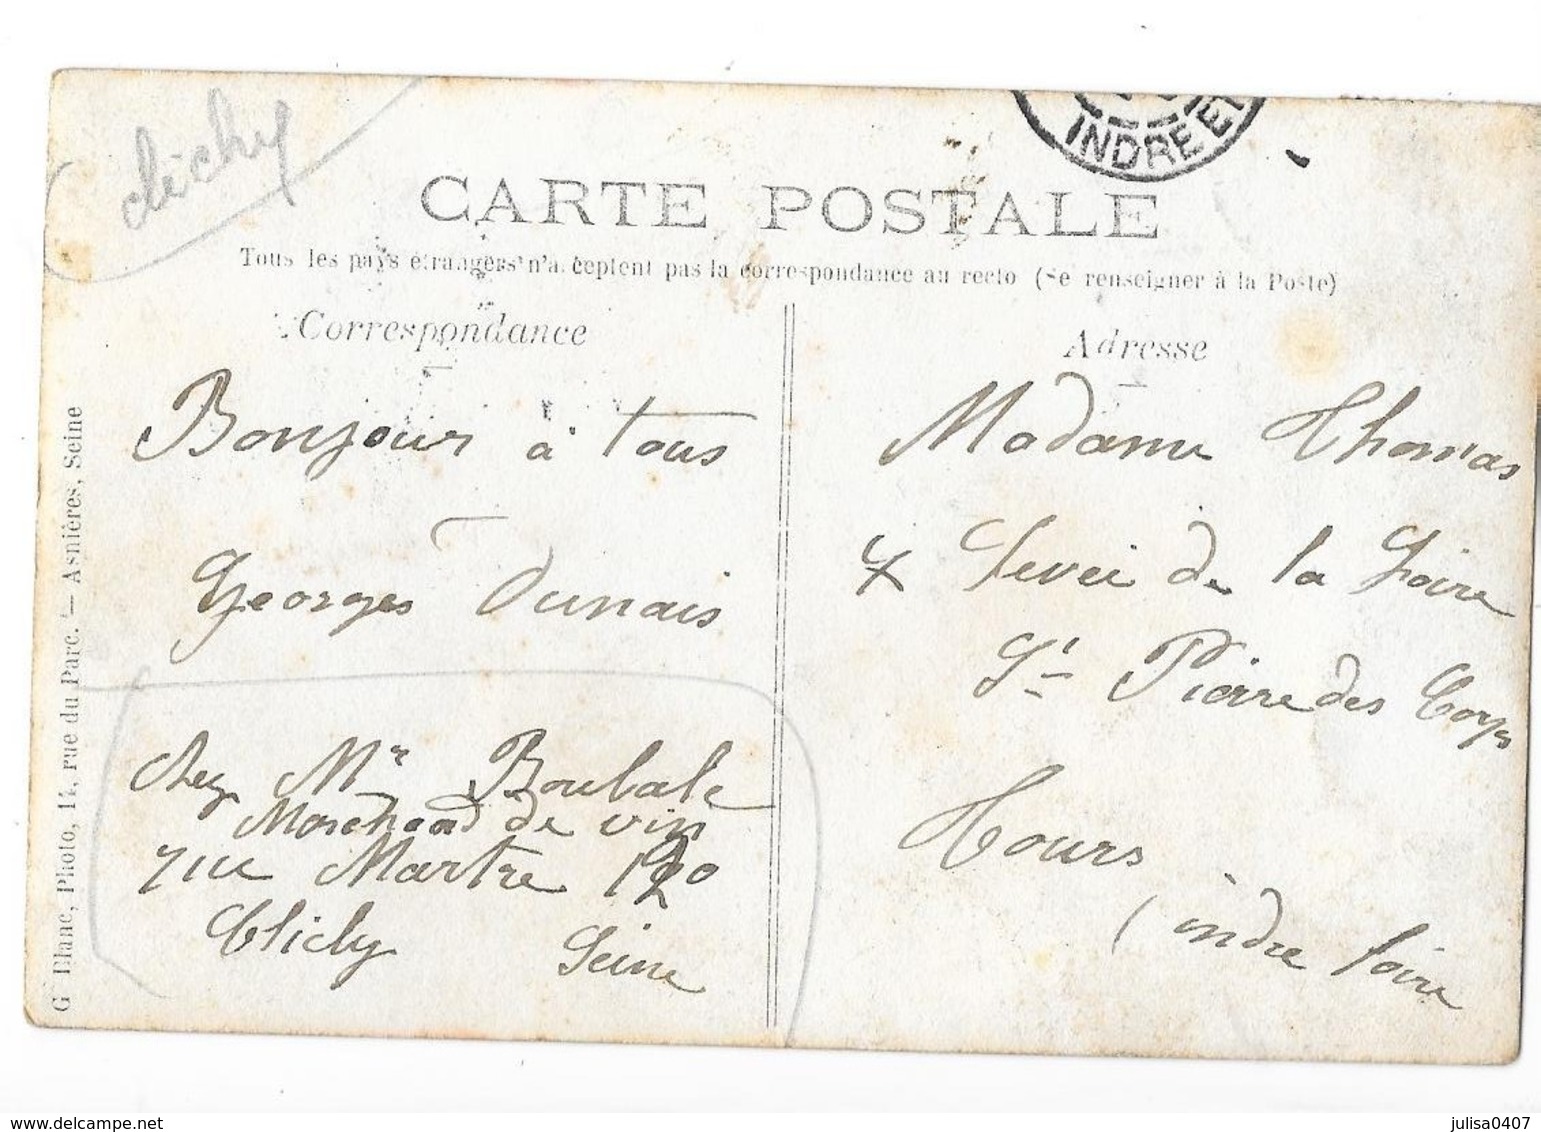 clichy
INDRE ET
CARTE POSTALE
Tous les pays étrangers n'acceptent pas la correspondance au recto (Se renseigner à la Poste)
Correspondance
Adresse
Bonjour à tous
Georges Dunais
chez Mr Boubale
Marchand de vin
rue Martre
Clichy Seine
Madame Thomas
Levée de la Loire
St Pierre des Corps
Tours
indre loire
G Blanc, Photo, 14, rue du Parc. — Asnières, Seine
delcampe.net
julisa0407